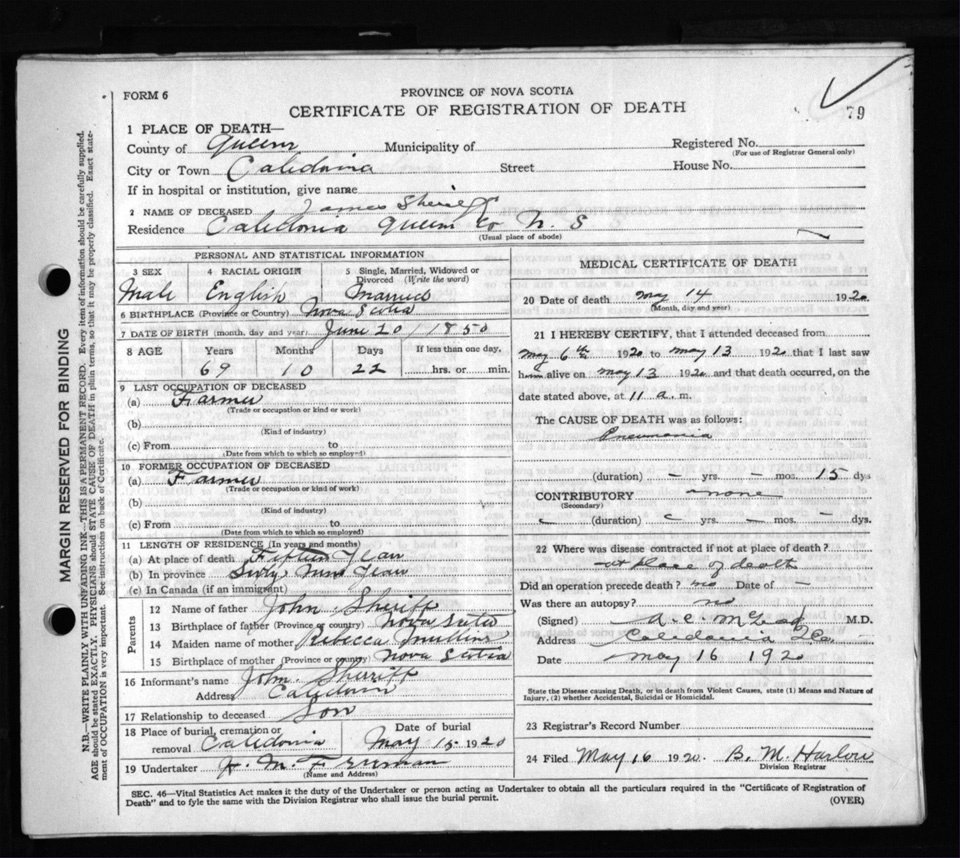 FORM 6
PROVINCE OF NOVA SCOTIA
CERTIFICATE OF REGISTRATION OF DEATH
79
1 PLACE OF DEATH—
County of Queens Municipality of
Registered No.
(For use of Registrar General only)
City or Town Caledonia Street House No.
If in hospital or institution, give name
2 NAME OF DECEASED James Sherriff
Residence Caledonia Queens Co N. S
(Usual place of abode)
PERSONAL AND STATISTICAL INFORMATION
3 SEX
Male
4 RACIAL ORIGIN
English
5 Single, Married, Widowed or Divorced (Write the word)
Married
6 BIRTHPLACE (Province or Country) Nova Scotia
7 DATE OF BIRTH (month, day and year) June 20 / 1850
8 AGE Years Months Days If less than one day,
69 10 22 hrs. or min.
9 LAST OCCUPATION OF DECEASED
(a) Farmer
(Trade or occupation or kind or work)
(b)
(Kind of industry)
(c) From to
(Date from which to which so employed)
10 FORMER OCCUPATION OF DECEASED
(a) Farmer
(Trade or occupation or kind of work)
(b)
(Kind of industry)
(c) From to
(Date from which to which so employed)
11 LENGTH OF RESIDENCE (In years and months)
(a) At place of death Fifteen Years
(b) In province Sixty Nine Years
(c) In Canada (if an immigrant)
Parents
12 Name of father John Sheriff
13 Birthplace of father (Province or country) Nova Scotia
14 Maiden name of mother Rebecca Mullins
15 Birthplace of mother (Province or country) Nova Scotia
16 Informant's name John Sherriff
Address Caledonia
17 Relationship to deceased Son
18 Place of burial, cremation or removal Caledonia
Date of burial
May 15 1920
19 Undertaker H. M.
(Name and Address)
MEDICAL CERTIFICATE OF DEATH
20 Date of death May 14 1920
(Month, day and year)
21 I HEREBY CERTIFY, that I attended deceased from
May 6th 1920 to May 13 1920 that I last saw
him alive on May 13 1920 and that death occurred, on the
date stated above, at 11 a. m.
The CAUSE OF DEATH was as follows:
Pneumonia
(duration) – yrs. – mos. 15 dys
CONTRIBUTORY none
(Secondary)
(duration) yrs. – mos. – dys.
22 Where was disease contracted if not at place of death?
at place of death
Did an operation precede death? no Date of –
Was there an autopsy? no
(Signed) M.D.
Address Caledonia
Date May 16 1920
State the Disease causing Death, or in death from Violent Causes, state (1) Means and Nature of
Injury, (2) whether Accidental, Suicidal or Homicidal.
23 Registrar's Record Number
24 Filed May 16 1920. B. M. Harlow
Division Registrar
SEC. 46—Vital Statistics Act makes it the duty of the Undertaker or person acting as Undertaker to obtain all the particulars required in the "Certificate of Registration of
Death" and to fyle the same with the Division Registrar who shall issue the burial permit.
(OVER)
MARGIN RESERVED FOR BINDING
N.B.—WRITE PLAINLY WITH UNFADING INK—THIS IS A PERMANENT RECORD. Every item of information should be carefully supplied.
AGE should be stated EXACTLY. PHYSICIANS should STATE CAUSE OF DEATH in plain terms, so that it may be properly classified. Exact state-
ment of OCCUPATION is very important. See instructions on back of Certificate.